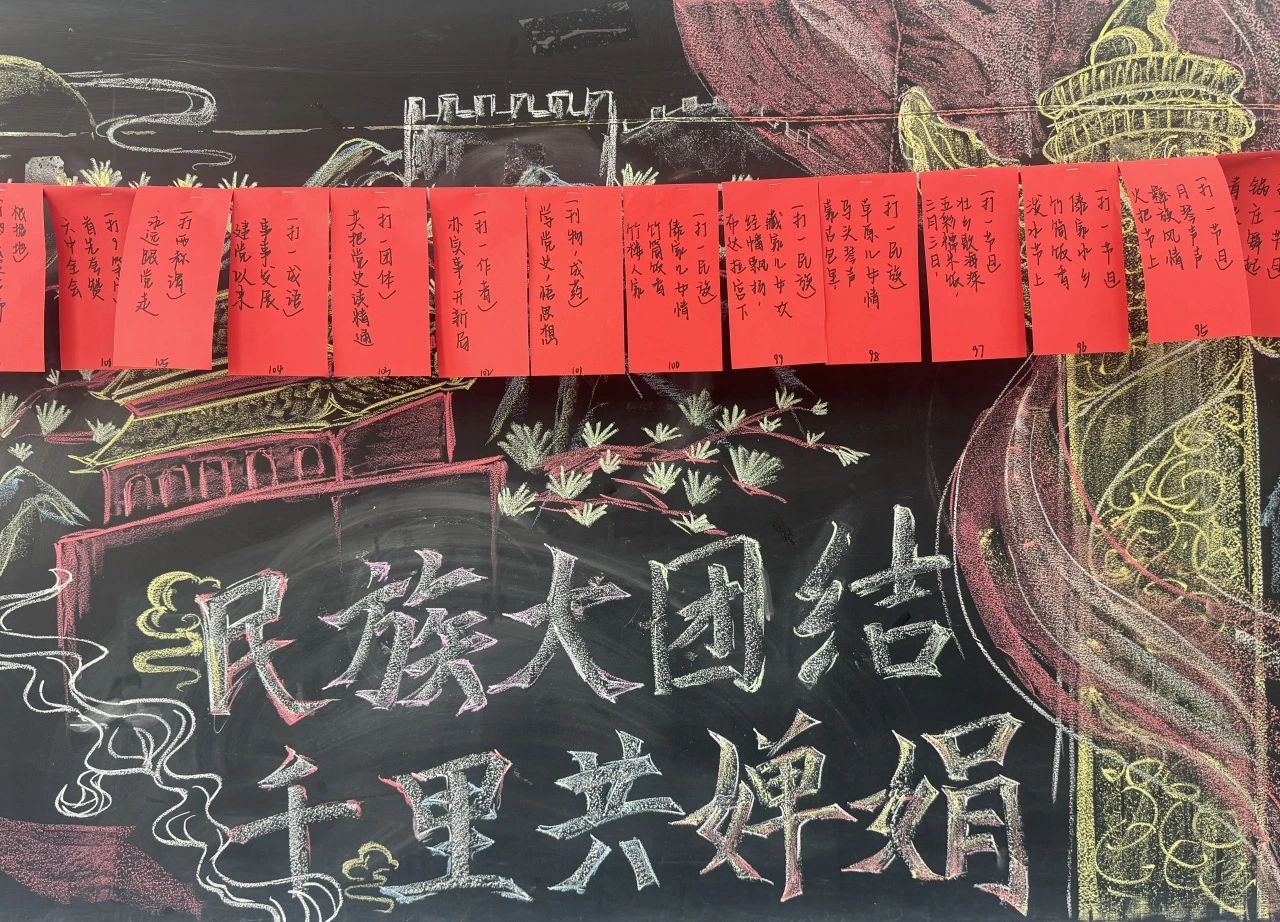 六中全会
永远跟党走
（打两称谓）
105
建党以来
事事发展
（打一成语）
104
共把党史读精通
（打一团体）
103
办实事，开新局
（打一作者）
102
学党史，悟思想
（刊物，成药）
101
竹楼人家
竹筒饭香
傣家儿女情
（打一民族）
100
布达拉宫下
经幡飘扬，
藏家儿女欢
（打一民族）
99
蒙古包里
马头琴声
草原儿女情
（打一民族）
98
三月三日，
五彩糯米饭，
壮乡歌海
（打一节日）
97
泼水节上
竹筒饭香
傣家水乡
（打一节日）
96
火把节上
彝族风情
月琴声声
（打一节日）
95
民族大团结
千里共婵娟